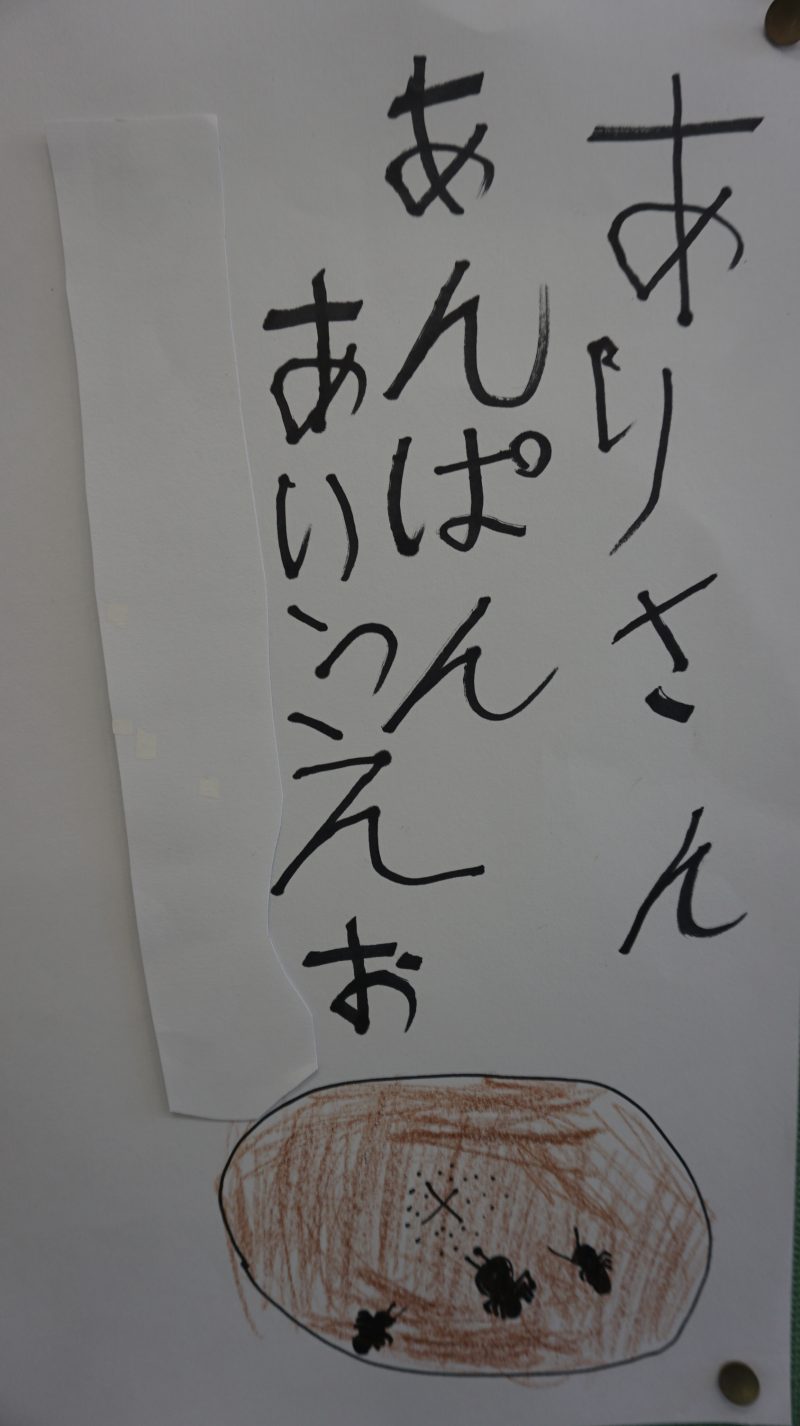 ありさん
あんぱん
あいうえお